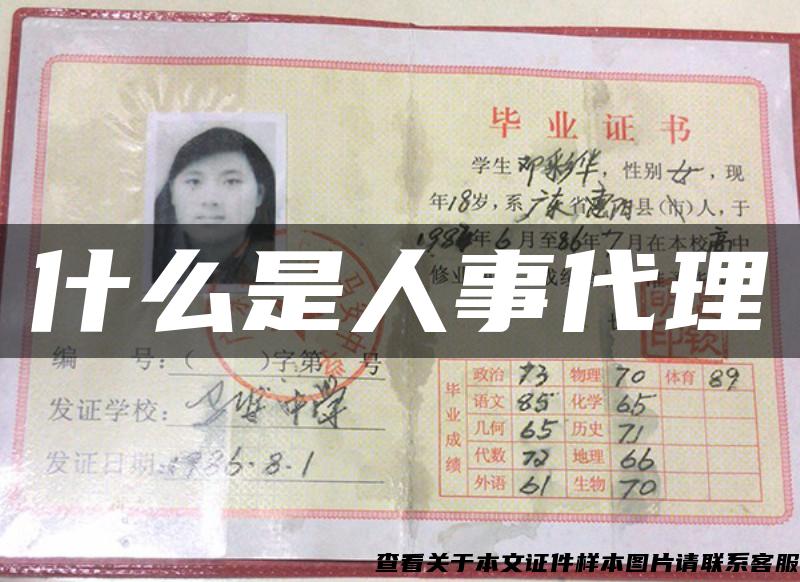 毕业证书
学生 邓彩华，性别女，现
年18岁，系广东省惠阳县（市）人，于
年6月至86年7月在本校高中
修业
什么是人事代理
编 号：（ ）字第 号
发证学校：马安中学
发证日期：1986.8.1
毕业成绩
政治 73 物理 70 体育 89
语文 85 化学 65
几何 65 历史 71
代数 72 地理 66
外语 61 生物 70
查看关于本文证件样本图片请联系客服